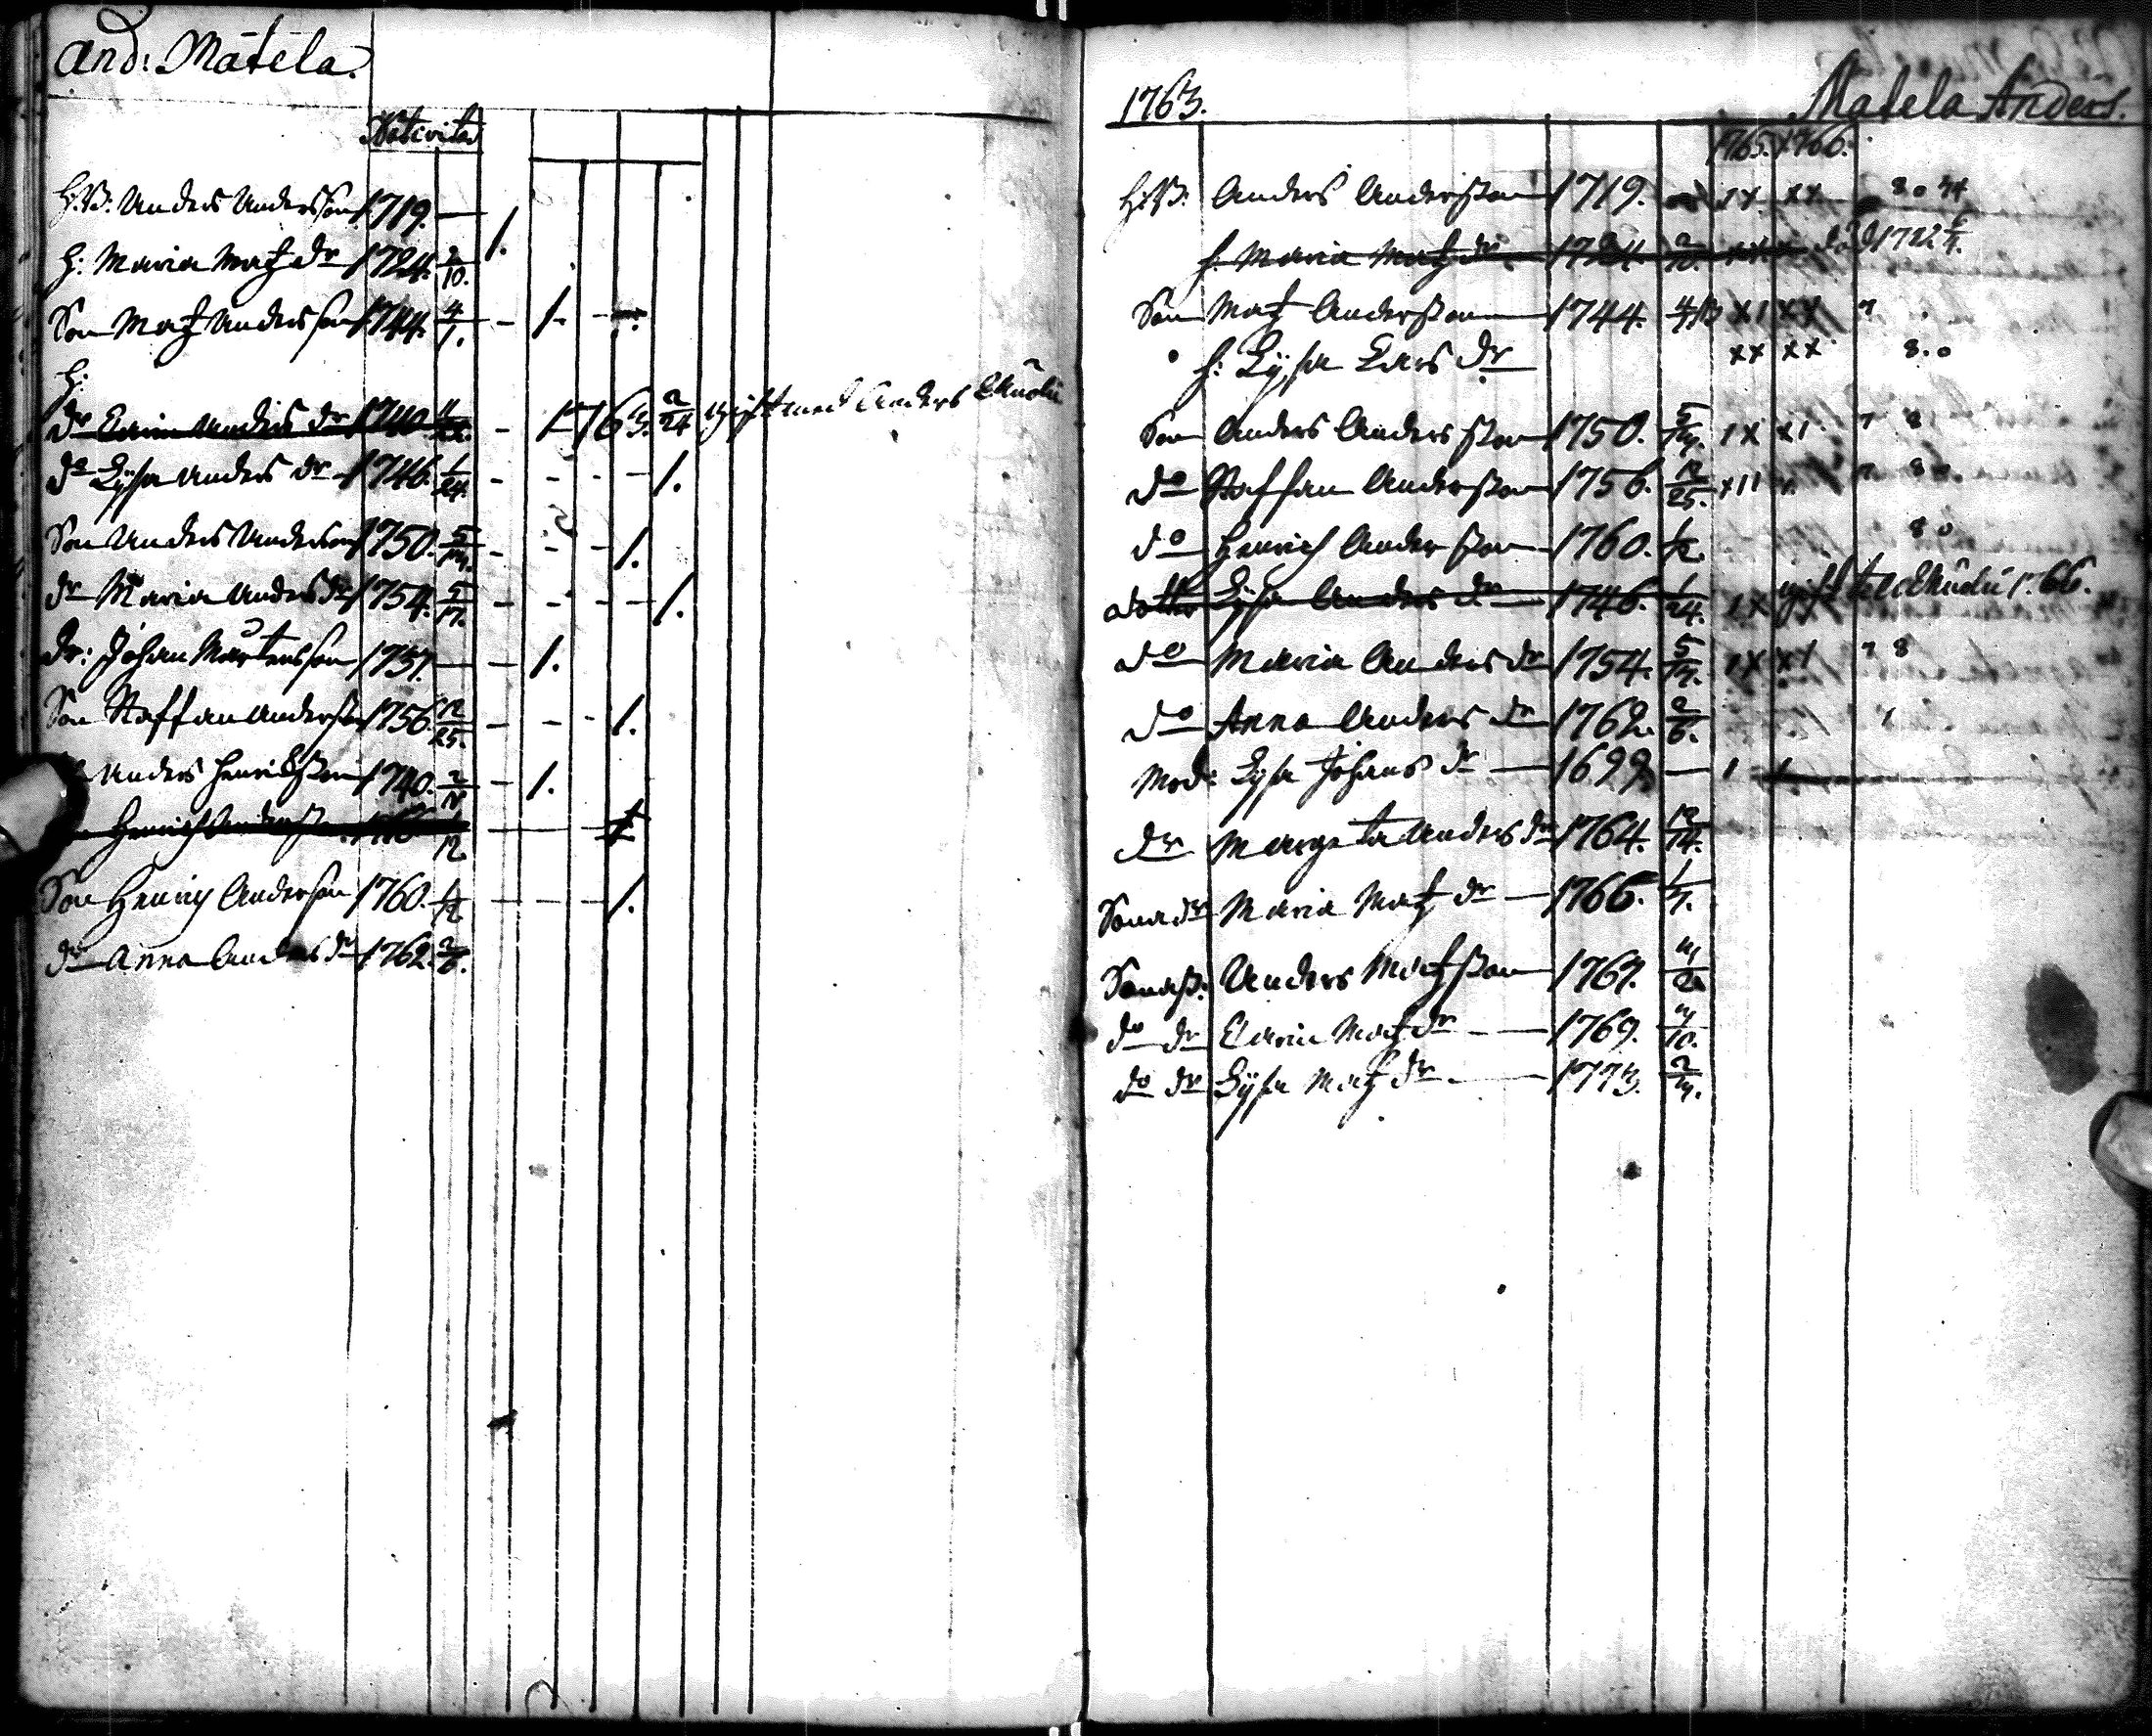 And: Matela.
Nativitas
H:B: Anders Andersson 1719. — 1.
H: Maria Matz dr 1724. 2/10.
Son Matz Andersson 1744. 4/1. - 1. -
H:
dr Carin Anders dr 1740 - 1763. 2/24 gift med Anders
do Lysa Anders dr 1746. 1/24. - - - - 1.
Son Anders Andersson 1750. 5/14. - - - 1.
dr Maria Anders dr 1754. 5/17. - - - - 1.
dr: Johan Mårtensson 1737. — - 1.
Son Staffan Andersson 1756. 12/25. - - - 1.
Anders Henrichsson 1740. 2/2 - 1.
Henrich Andersson 1/12 1
Son Henrich Andersson 1760. 1/12 - - - 1.
dr Anna Anders dr 1762. 2/6.
1763. Matela Anders.
1765. 1766.
H:B: Anders Andersson 1719. 1x xx 80
h. Maria Matz dr 1724. 2/10. död
Son Matz Andersson 1744. 4/1 x1 xx 7
h: Lysa Lars dr xx xx 8.0
Son Anders Andersson 1750. 5/14. 1x x1 7 8
do Staffan Andersson 1756. 12/25. x11 80.
do Henrich Andersson 1760. 1/12. 80
dotter Lysa Anders dr 1746. 1/24. 1x gift till 1766.
do Maria Anders dr 1754. 5/17. 1x x1 7 8
do Anna Anders dr 1762. 2/6.
Mod: Lysa Johans dr — 1699 — 1 1
dr Margeta Anders dr 1764. 12/14.
Sonadr Maria Matz dr — 1766. 1/7.
Sonaß: Anders Matzson 1767.
do dr Carin Matz dr — 1769.
do dr Lysa Matz dr — 1773.